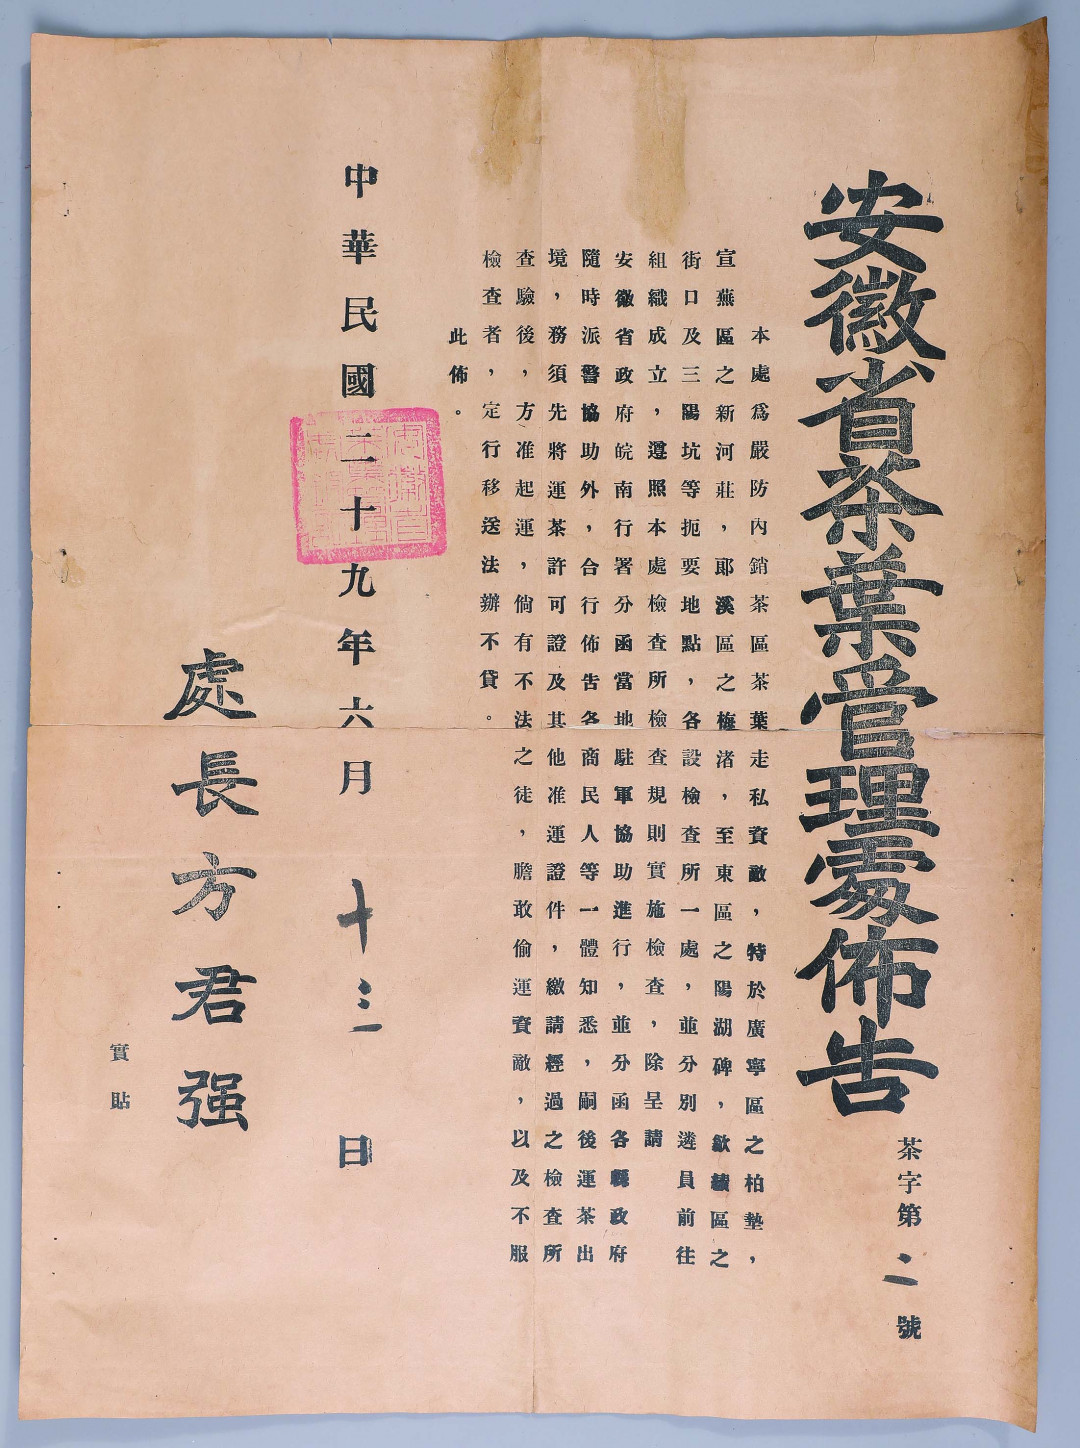 安徽省茶葉管理處佈告
茶字第二號
本處爲嚴防內銷茶區茶葉走私資敵，特於廣寧區之柏墊，
宣蕪區之新河莊，郎溪區之梅渚，至東區之陽湖碑，歙績區之
街口及三陽坑等扼要地點，各設檢查所一處，並分別遴員前往
組織成立，遵照本處檢查所檢查規則實施檢查，除呈請
安徽省政府皖南行署分函當地駐軍協助進行，並分函各縣政府
隨時派警協助外，合行佈告各商民人等一體知悉，嗣後運茶出
境，務須先將運茶許可證及其他准運證件，繳請經過之檢查所
查驗後，方准起運，倘有不法之徒，膽敢偷運資敵，以及不服
檢查者，定行移送法辦不貸。
此佈。
中華民國二十九年六月十三日
處長方君强
實貼